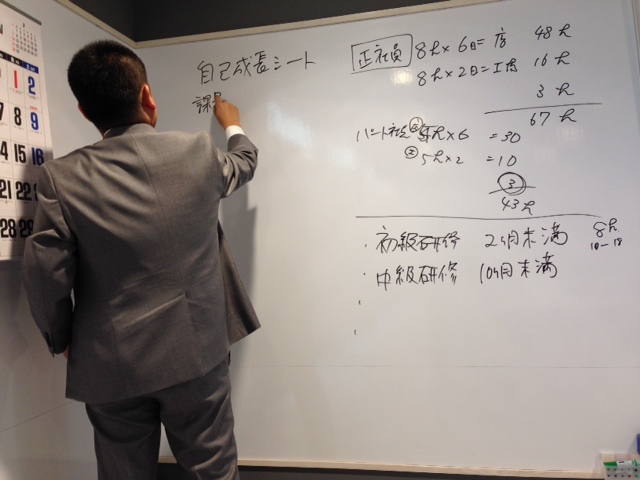 自己成長シート
課
正社員 8h×6日=店 48h
8h×2日=工房 16h
3h
67h
パート社員 ① 5h×6 =30
② 5h×2 =10
③
43h
・初級研修 2ヶ月未満 8h
10-18
・中級研修 10ヶ月未満
・
・
1 2
7 8 9
14 15 16
21 22 23
28 29